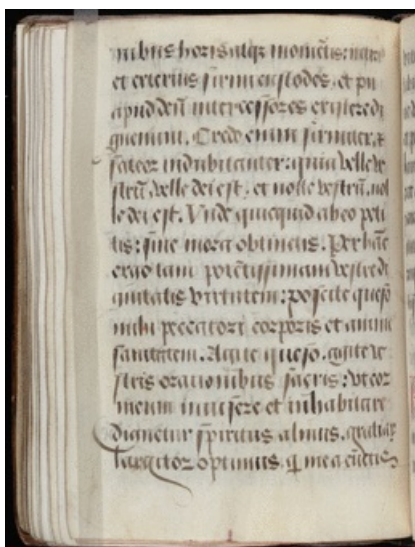 nibus horis atq; momētis: ....
et exterius sitis custodes, et pii
apud deū intercessores existere di
gnemini. Credo enim firmiter, &
fateor indubitanter: quia velle ve
strū, velle dei est, et nolle vestrū, nol
le dei est. Vnde quicquid ab eo peti
tis: sine mora obtinetis. Per hāc
ergo tam potētissimam vestre di
gnitatis virtutem: poscite queso
mihi peccatori corporis et anime
sanitatem. Agite queso, agite ve
stris orationibus sacris: vt cor
meum inuisere et inhabitare
dignetur spiritus almus, gratiarꝫ
largitor optimus, q̄ me a cūctis